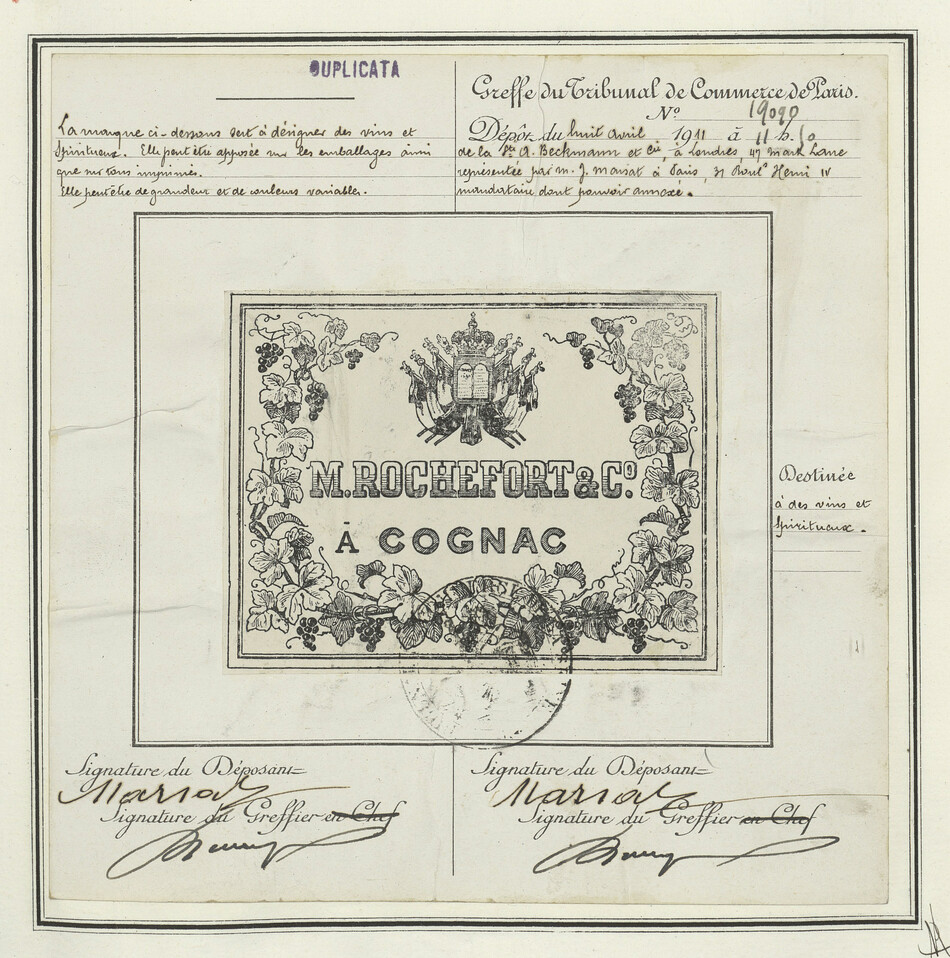 DUPLICATA
La marque ci-dessous sert à désigner des vins et
Spiritueux. Elle peut être apposée sur les emballages ainsi
que sur tous imprimés.
Elle peut être de grandeur et de couleurs variables.
Greffe du Tribunal de Commerce de Paris.
N° 19090
Dépôt du huit avril 1911 à 11 h. 50
de la Sté A. Beckmann et Cie, à Londres, 47 Mark Lane
représentée par M. J. Marsat à Paris, 31 Boulᵈ Henri IV
mandataire dont pouvoir annexé.
M. ROCHEFORT & Cº.
À COGNAC
Destinée
à des vins et
Spiritueux.
Signature du Déposant
Marsat
Signature du Greffier en Chef
Signature du Déposant
Marsat
Signature du Greffier en Chef